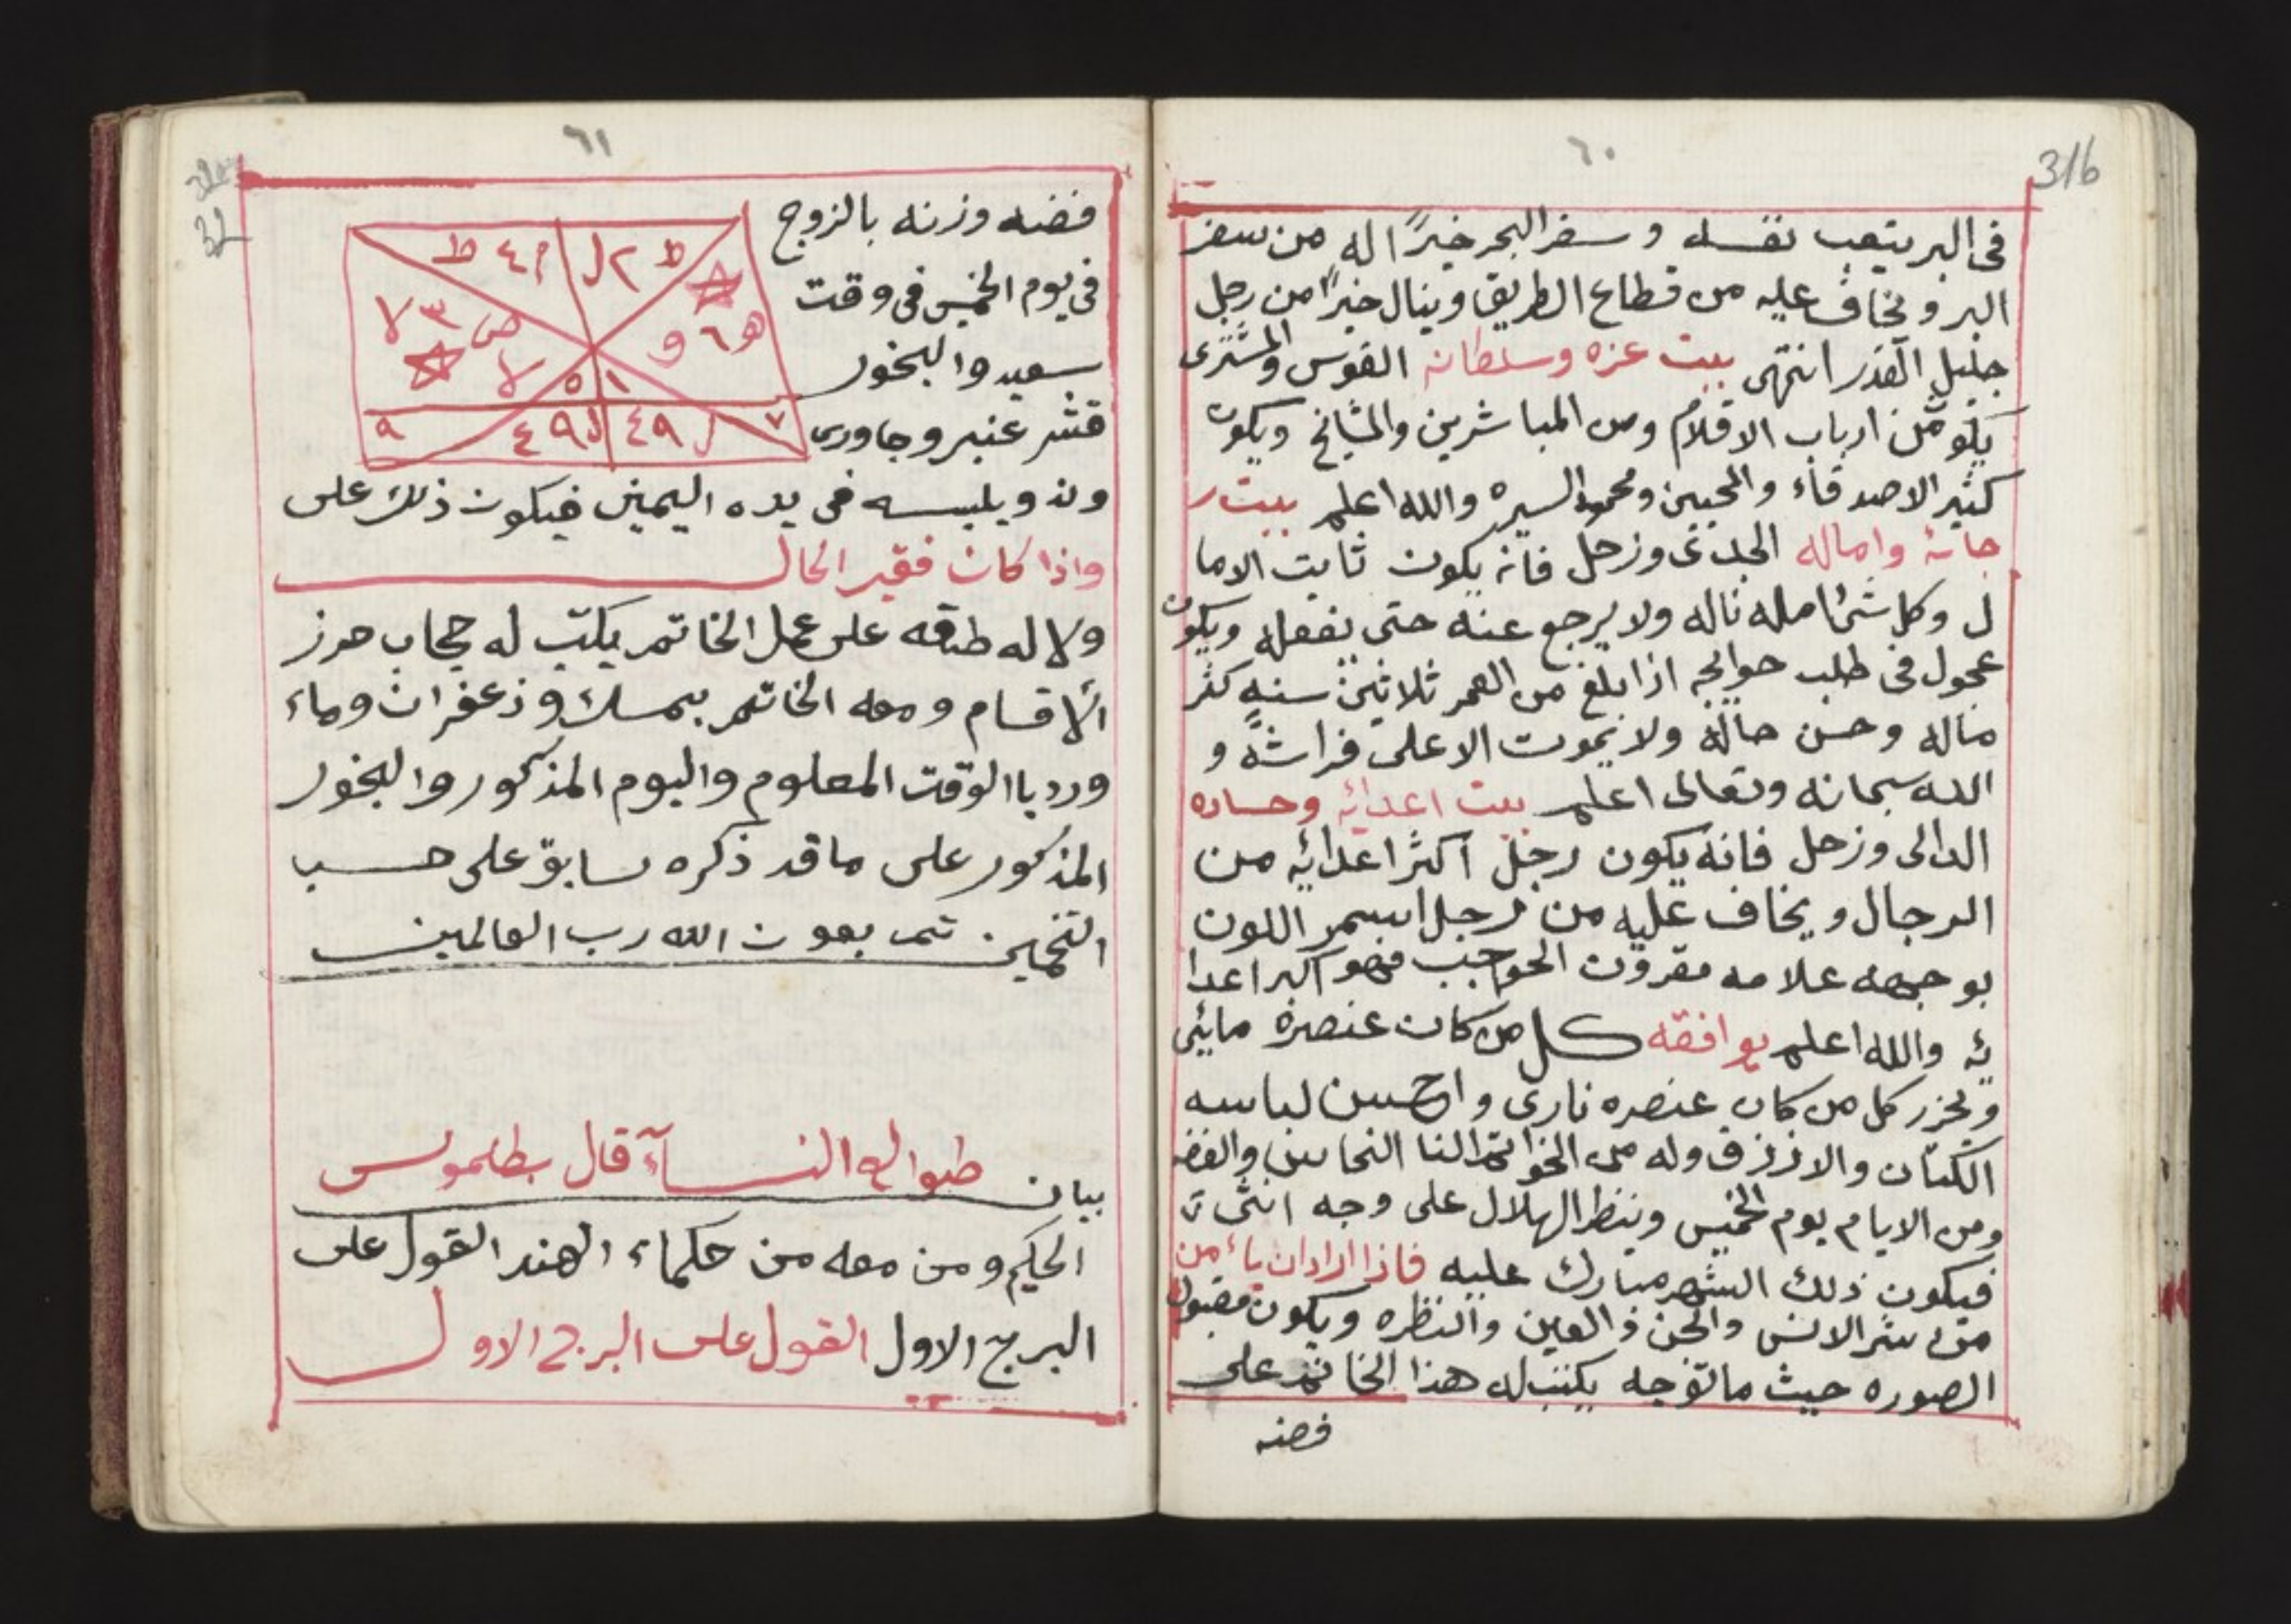 ٦٠
316
فى البر يتعب نفسه وسفر البحر خيرًا له من سفر
البر ويخاف عليه من قطاع الطريق وينال خيرًا من رجل
جليل القدر انتهى بيت عزه وسلطانه القوس والمشترى
يكون من ارباب الاقلام ومن المباشرين والمشايخ ويكون
كثير الاصدقاء والمحبين ومحمود السيره والله اعلم بيت ر
جائه واماله الجدى وزحل فانه يكون ثابت الاما
ل وكل شئ امله ناله ولا يرجع عنه حتى يفعله ويكون
عجول فى طلب حوائجه اذا بلغ من العمر ثلاثين سنه كثر
ماله وحسن حاله ولا يموت الا على فراشه و
الله سبحانه وتعالى اعلم بيت اعدائه وحساده
الدالى وزحل فانه يكون رجل اكثر اعدائه من
الرجال ويخاف عليه من رجل اسمر اللون
بوجهه علامه مقرون الحواجب فهو اكبر اعدا
ئه والله اعلم يوافقه كل من كان عنصره مايئى
ويحزر كل من كان عنصره نارى واحسن لباسه
الكتان والازرق وله من الخواتم النحاس والفضه
ومن الايام يوم الخميس وينظر الهلال على وجه انثى
فيكون ذلك الشهر مبارك عليه فاذا اراد ان ياءمن
من شر الانس والجن والعين والنظره ويكون مقبول
الصوره حيث ما توجه يكتب له هذا الخاتم على
فضه
٦١
32
فضه وزنه بالزوج
فى يوم الخميس فى وقت
سعيد والبخور
قشر عنبر وجاورى
ط ٢ ل
م ٤ ط
ه ٦ و
ص ٣ لا
لا
٥ ١
٧ ل ٩ ٤
ل ٩ ٤ ٩
وند ويلبسه فى يده اليمين فيكون ذلك على
واذا كان فقير الحال
ولا له طاقه على عمل الخاتم يكتب له حجاب حرز
الاقسام ومعه الخاتم بمسك وزعفران وماء
ورد با الوقت المعلوم واليوم المذكور والبخور
المذكور على ما قد ذكره سابق على حسب
التخمين تم بعون الله رب العالمين
بيان طوالع النسآء قال بطلموس
الحكيم ومن معه من حكماء الهند القول على
البرج الاول القول على البرج الاول